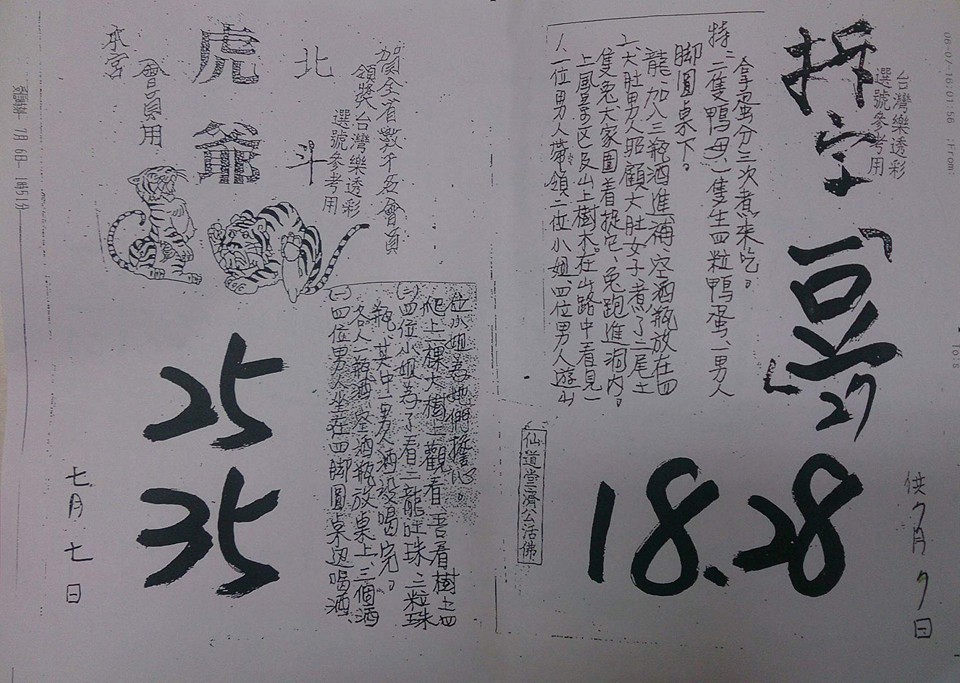 06-07-16:01:56 ;From:
台灣樂透彩
選號參考用
拆字「豆」
27
18.28
供7月7日
拿蛋分三次煮來吃。
特:二隻鴨母、一隻生四粒鴨蛋、一男人
脚圓桌下。
龍加入三瓶酒進補、空酒瓶放在四
二、大肚男人照顧大肚女子煮了二尾土
隻兔大家圍着捉它、兔跑進洞內。
上風景區及山上樹木。在山路中看見一
一位男人帶領二位小姐、四位男人遊山
仙道堂濟公活佛
賀全省數千位會員
領獎台灣樂透彩
選號參考用
北斗
虎爺
會員用
本宮
25
35
七月七日
位小姐吾她們擔心。
爬上一棵大樹上觀看、吾看樹上四
(二)四位小姐為了看二龍旺珠、二粒珠
瓶、其中一男人酒沒喝完。
各人一瓶酒、空酒瓶放桌上、三個酒
(一)四位男人坐在四脚圓桌邊喝酒、